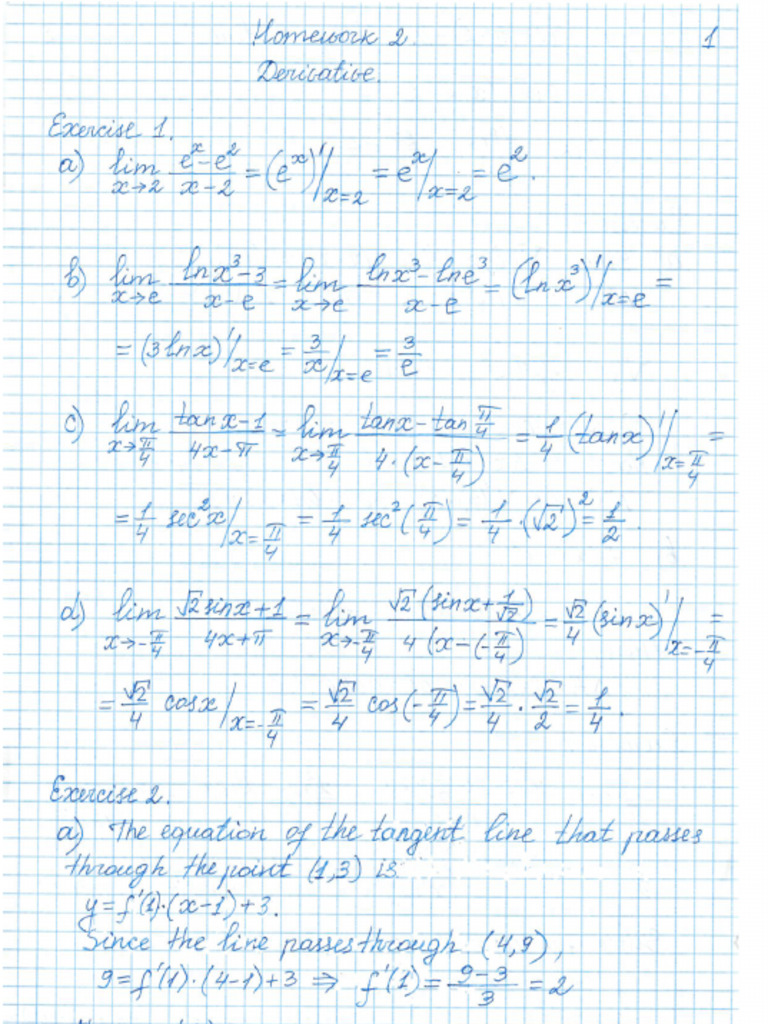 Homework 2. 1
Derivative.
Exercise 1.
a) lim_{x→2} (e^x - e^2)/(x-2) = (e^x)'|_{x=2} = e^x|_{x=2} = e^2.
b) lim_{x→e} (ln x^3 - 3)/(x-e) = lim_{x→e} (ln x^3 - ln e^3)/(x-e) = (ln x^3)'|_{x=e} =
= (3 ln x)'|_{x=e} = 3/x|_{x=e} = 3/e
c) lim_{x→π/4} (tan x - 1)/(4x-π) = lim_{x→π/4} (tan x - tan π/4)/(4·(x-π/4)) = 1/4 (tan x)'|_{x=π/4} =
= 1/4 sec^2 x|_{x=π/4} = 1/4 sec^2(π/4) = 1/4·(√2)^2 = 1/2.
d) lim_{x→-π/4} (√2 sin x + 1)/(4x+π) = lim_{x→-π/4} √2(sin x + 1/√2)/(4(x-(-π/4)) = √2/4 (sin x)'|_{x=-π/4} =
= √2/4 cos x|_{x=-π/4} = √2/4 cos(-π/4) = √2/4 · √2/2 = 1/4.
Exercise 2.
a) The equation of the tangent line that passes
through the point (1,3) is
y = f'(1)·(x-1)+3.
Since the line passes through (4,9),
9 = f'(1)·(4-1)+3 ⇒ f'(1) = (9-3)/3 = 2